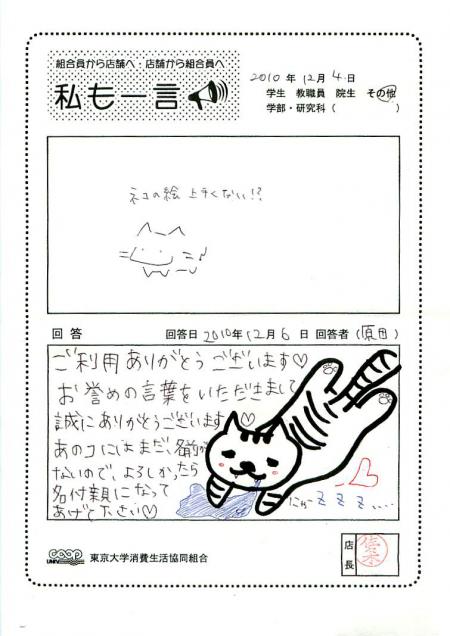 組合員から店舗へ・店舗から組合員へ
私も一言
2010年12月4日
学生 教職員 院生 その他
学部・研究科( )
ネコの絵 上手くない!?
回答
回答日 2010年12月6日 回答者(原田)
ご利用ありがとうございます♡
お誉めの言葉をいただきまして
誠にありがとうございます♡
あのコにはまだ、名前が
ないので、よろしかったら
名付親になって
あげて下さい♡
にゃー z z z ....
COOP
UNIV.
東京大学消費生活協同組合
店長